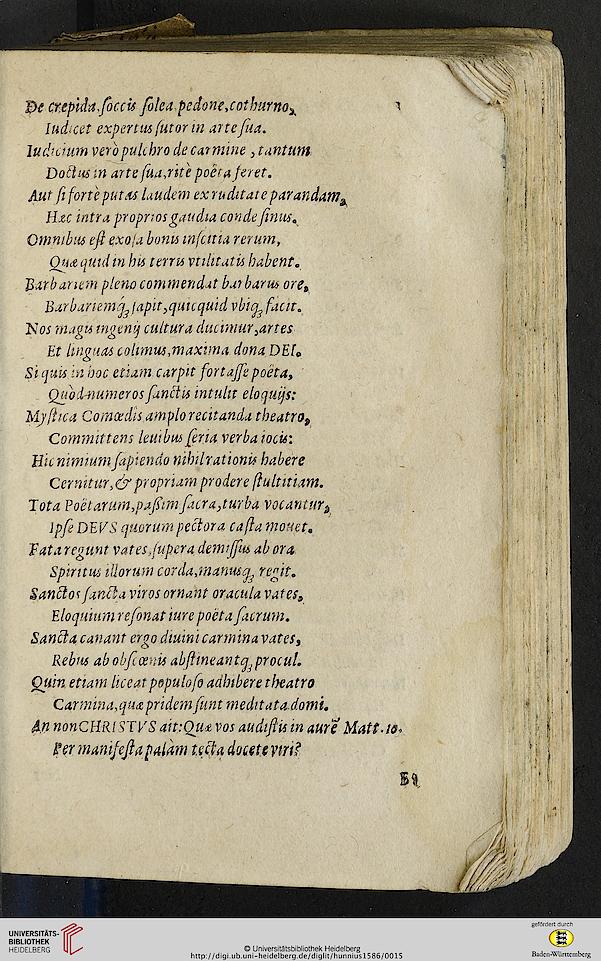 De crepida, soccis solea, pedone, cothurno,
Iudicet expertus sutor in arte sua.
Iudicium verò pulchro de carmine, tantum
Doctus in arte sua, ritè poëta feret.
Aut si fortè putas laudem ex ruditate parandam,
Hæc intra proprios gaudia conde sinus.
Omnibus est exosa bonis inscitia rerum,
Quæ quid in his terris vtilitatis habent.
Barbariem pleno commendat barbarus ore,
Barbariemq́; sapit, quicquid vbiq; facit.
Nos magis ingenij cultura ducimur, artes
Et linguas colimus, maxima dona DEI.
Si quis in hoc etiam carpit fortasse poëta,
Quòd numeros sanctis intulit eloquijs:
Mystica Comœdis amplo recitanda theatro,
Committens leuibus seria verba iocis:
Hic nimium sapiendo nihil rationis habere
Cernitur, & propriam prodere stultitiam.
Tota Poëtarum, paßim sacra, turba vocantur,
Ipse DEVS quorum pectora casta mouet.
Fata regunt vates, supera demissus ab ora
Spiritus illorum corda, manusq; regit.
Sanctos sancta viros ornant oracula vates,
Eloquium resonat iure poëta sacrum.
Sancta canant ergo diuini carmina vates,
Rebus ab obscœnis abstineantq; procul.
Quin etiam liceat populoso adhibere theatro
Carmina, quæ pridem sunt meditata domi.
An non CHRISTVS ait: Quæ vos audistis in aurē Matt. 10.
Per manifesta palàm tecta docete viri?
UNIVERSITÄTS-
BIBLIOTHEK
HEIDELBERG
© Universitätsbibliothek Heidelberg
http://digi.ub.uni-heidelberg.de/diglit/hunnius1586/0015
gefördert durch
Baden-Württemberg